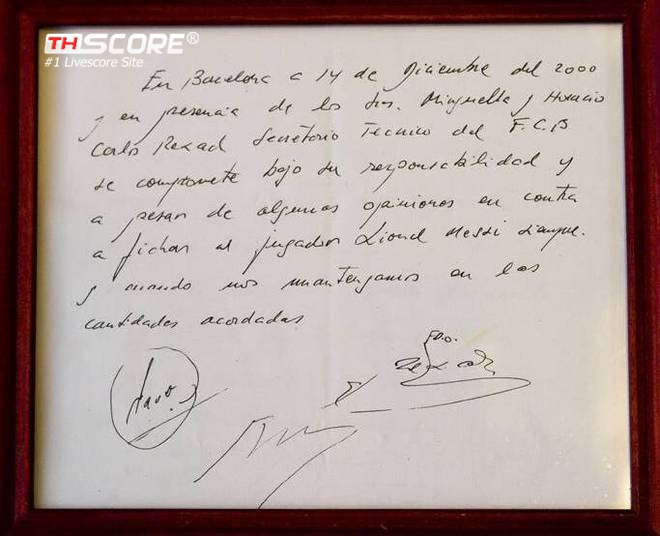 THSCORE®
#1 Livescore Site
En Barcelona a 14 de Diciembre del 2000
y en presencia de los Sres. Minguella y Horacio
Carlos Rexach Secretario Tecnico del F.C.B
se compromete bajo su responsabilidad y
a pesar de algunas opiniones en contra
a fichar al jugador Lionel Messi siempre.
y cuando nos mantengamos en las
cantidades acordadas
FDO.